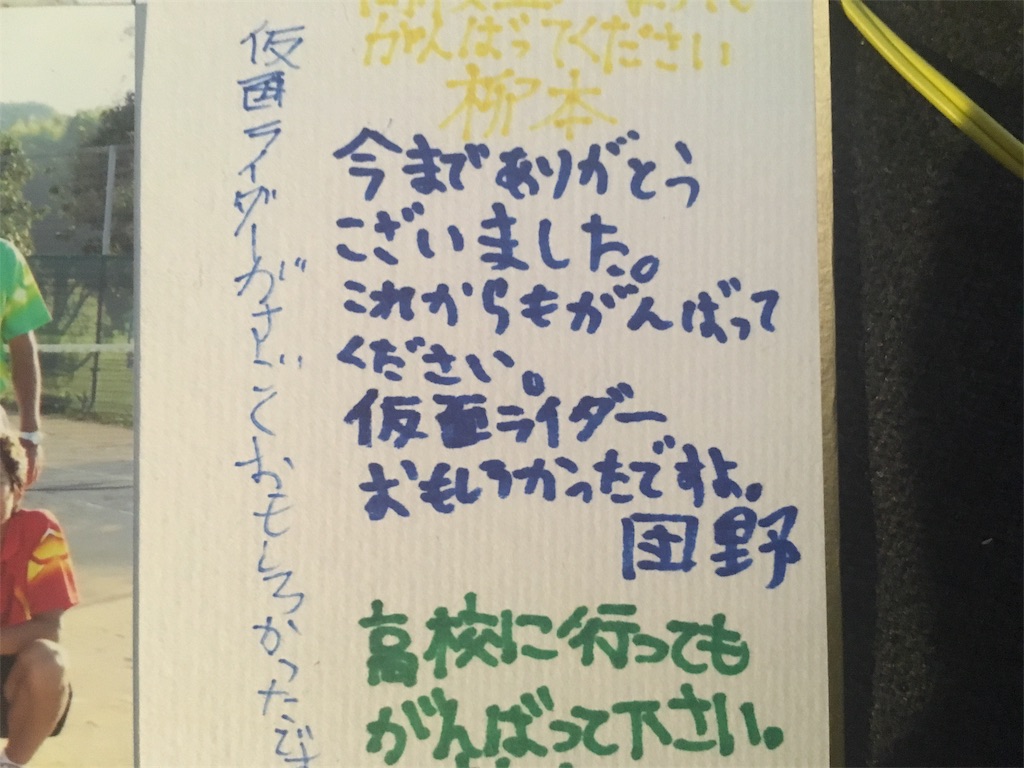 がんばってください
柳本
今まで ありがとう
ございました。
これからもがんばって
ください。
仮面ライダー
おもしろかったですよ。
団野
高校に行っても
がんばって下さい。
仮面ライダーがさいごくおもしろかったです